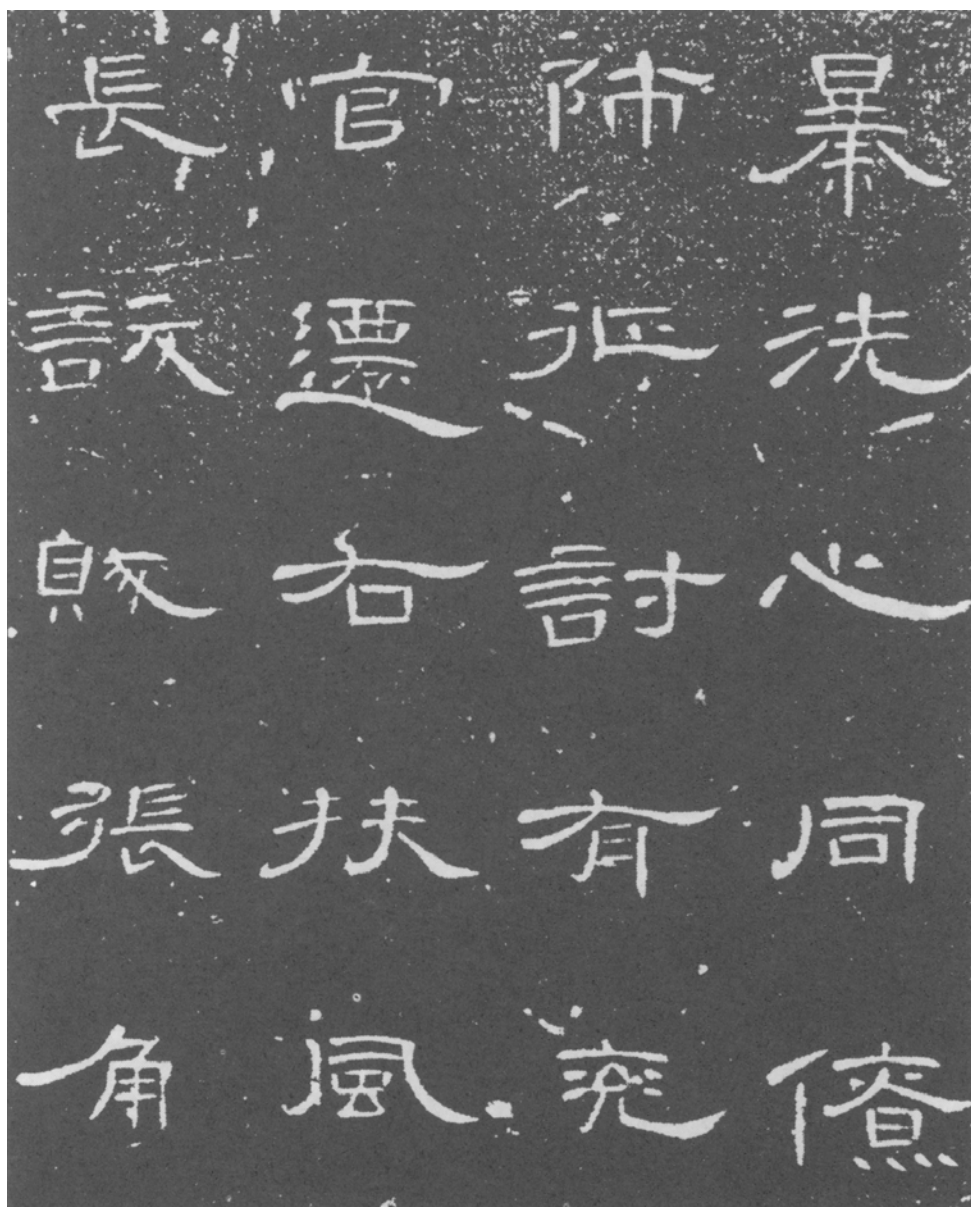 暴洗心同僚
師征討有兖
官遷右扶風
長訞賊張角